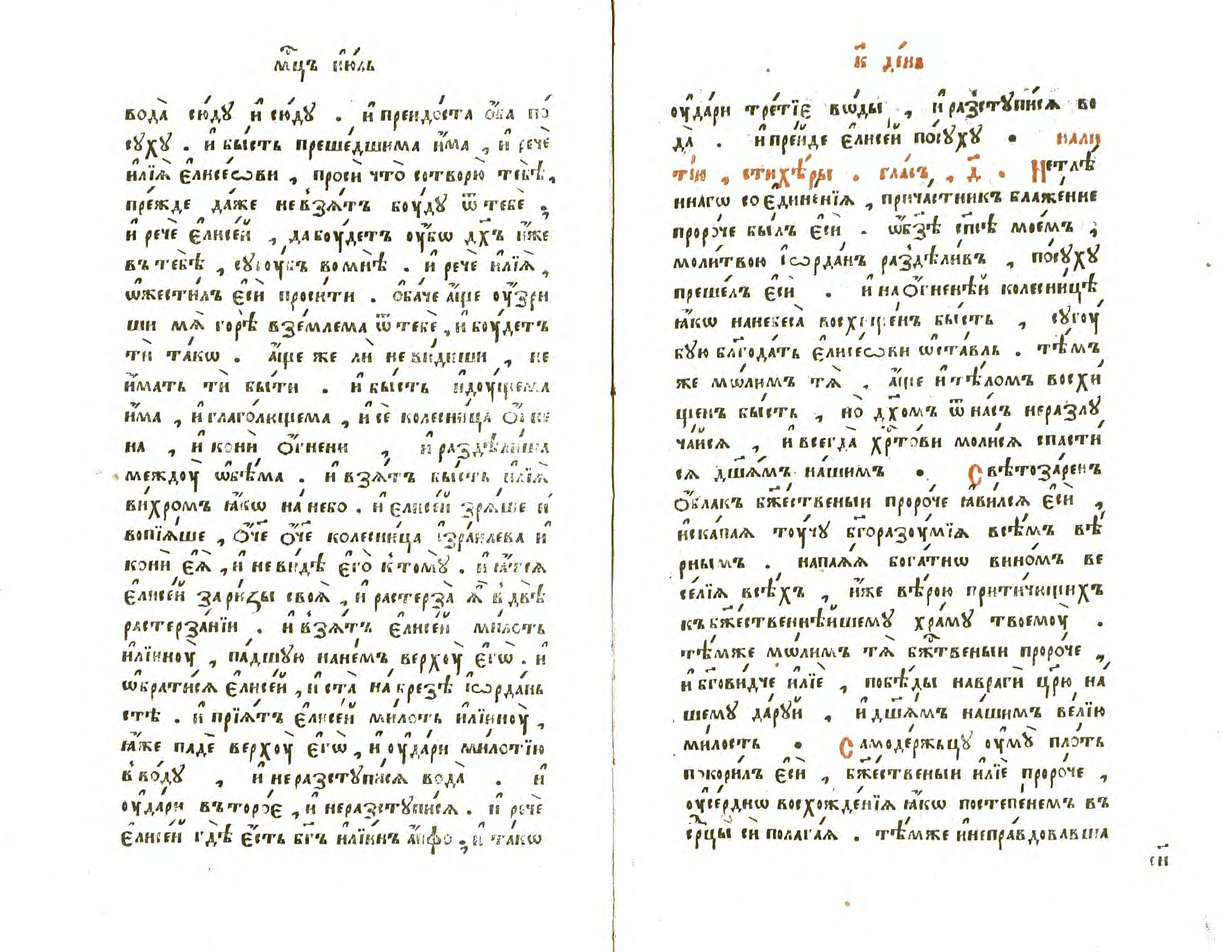 мц҃ъ і҆ю́ль
вода̀ сю́ду и҆ сю́ду . и҆ преидо́ста о҆́ба по́
суху . и҆ бы́сть преше́дшима и҆́ма , и҆ речѐ
и҆лїѧ̀ є҆лисе́ѡви , проси̂ что̀ сотворю̀ тебѣ̀ ,
пре́жде да́же не взѧ́тъ бо́уду ѿ тебѐ .
и҆ речѐ є҆лисе́й , да бо́удетъ о҆у́бѡ дх҃ъ и҆́же
въ тебѣ̀ , сугоу́бъ во мнѣ̀ . и҆ речѐ и҆лїѧ̀ ,
ѡ҆жести́лъ є҆сѝ проси́ти . ѻ҆ба́че а҆́ще о҆у҆́зри
ши мѧ̀ го́рѣ взе́млема ѿ тебѐ , и҆ бо́удетъ
тѝ та́кѡ . а҆́ще же лѝ не ви́диши , не
и҆́мать тѝ бы́ти . и҆ бы́сть и҆доу́щема
и҆́ма , и҆ глаго́лющема , и҆ сѐ колесни́ца ѻ҆́гне
на , и҆ ко́ни ѻ҆́гнени , и҆ раздѣли́ша
междоу̀ ѡ҆бѣ́ма . и҆ взѧ́тъ бы́сть и҆лїѧ̀
ви́хромъ ꙗ҆́кѡ на́ небо . и҆ є҆лисе́й зрѧ́ше и҆
вопїѧ́ше , ѻ҆́ч҃е ѻ҆́ч҃е колесни́ца і҆зра́илева и҆
ко́ни є҆ѧ̀ , и҆ не ви́дѣ є҆го̀ к то́му . и҆ ꙗ҆́тсѧ
є҆лисе́й за ри́зы своѧ̀ , и҆ растерза̀ ѧ҆̀ в двѣ̀
растерза́нїи . и҆ взѧ́тъ є҆лисе́й ми́лоть
и҆лїиноу̀ , па́дшую на́немъ верхоу̀ є҆гѡ̀ . и҆
ѡ҆брати́сѧ є҆лисе́й , и҆ ста̀ на́ брезѣ і҆ѻрда́нь
стѣ . и҆ прїѧ́тъ є҆лисе́й ми́лоть и҆лїиноу̀ ,
ꙗ҆́же падѐ верхоу̀ є҆гѡ̀ , и҆ о҆уда́ри ми́лотїю
в во́ду , и҆ не разступи́сѧ вода̀ . и҆
о҆уда́ри въ второ́є , и҆ не разступи́сѧ . и҆ речѐ
є҆лисе́й гдѣ̀ є҆́сть бг҃ъ и҆лїи́нъ а҆пфѡ̀ . и҆ та́кѡ
к҃ де́нь
о҆уда́ри тре́тїє во́ды , и҆ разступи́сѧ во
да̀ . и҆ пре́йде є҆лисе́й по́суху . на ли
ті́ю , стихѣ́ры . гла́съ , д҃ . Нетлѣ́
ннагѡ соєдине́нїѧ , прича́стникъ блаже́нне
проро́че бы́лъ є҆сѝ . ѡ҆б҃зѣ сп҃сѣ мое́мъ ,
моли́твою і҆ѻрда́нъ раздѣли́въ , по́суху
преше́лъ є҆сѝ . и҆ на ѻ҆́гненѣй колесни́цѣ
ꙗ҆́кѡ на небеса̀ восхище́нъ бы́сть , сугоу́
бую бл҃года́ть є҆лисе́ѡви ѡ҆ста́вль . тѣ́м
же мо́лимъ тѧ̀ . а҆́ще и҆ тѣ́ломъ восхи
ще́нъ бы́сть , но̀ дх҃омъ ѿ на́съ неразлу
ча́йсѧ , и҆ всегда̀ хр҃то́ви моли́сѧ спасти́
сѧ дш҃а́мъ на́шимъ . Свѣтоза́ренъ
ѻ҆́блакъ бж҃е́ственыи проро́че ꙗ҆ви́лсѧ є҆сѝ ,
и҆скапаѧ тоу́чу бг҃оразоу́мїѧ всѣ́мъ вѣ́
рнымъ . напаѧѧ бога́тнѡ вино́мъ ве
се́лїѧ всѣ́хъ , и҆́же вѣ́рою прити́чющихъ
къ бж҃е́ственнѣйшему хра́му твоемоу̀ .
тѣ́мже мо́лимъ тѧ̀ бж҃твеныи проро́че ,
и҆ бг҃ови́дче и҆лїє̀ , побѣ́ды на враги̂ цр҃ю на́
шему да́руй , и҆ дш҃а́мъ на́шимъ ве́лїю
ми́лость . Самоде́ржьцу о҆умꙋ̀ пло́ть
покори́лъ є҆сѝ , бж҃е́ственыи и҆лїє̀ проро́че ,
о҆усе́рднѡ восхожде́нїѧ ꙗ҆́кѡ посте́пенемъ въ
ср҃цы сѝ пола́гаѧ . тѣ́мже и҆ непра́вдовавша
сн҃